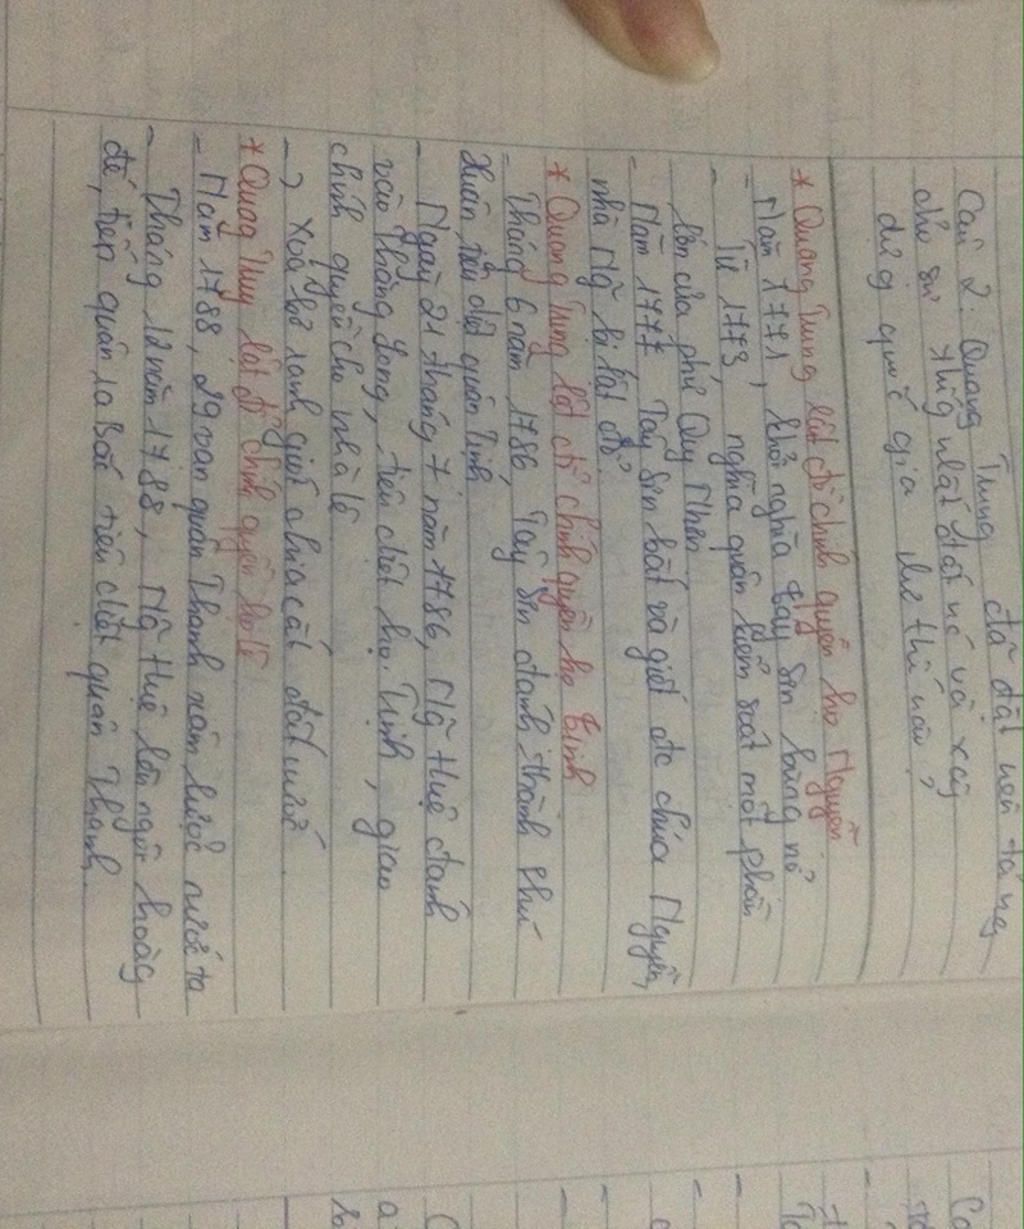 Câu 2: Quang Trung đã đặt nền tảng
cho sự thống nhất đất nc và xây
dựng quốc gia như thế nào?
* Quang Trung lật đổ chính quyền họ Nguyễn
- Năm 1771, khởi nghĩa Tây Sơn bùng nổ
- Từ 1773, nghĩa quân kiểm soát một phần
lớn của phủ Quy Nhơn
- Năm 1777 Tây Sơn bắt và giết đc chúa Nguyễn,
nhà Ng~ bị lật đổ.
* Quang Trung lật đổ chính quyền họ Trịnh
- Tháng 6 năm 1786, Tây Sơn đánh thành Phú
Xuân, tiêu diệt quân Trịnh
- Ngày 21 tháng 7 năm 1786, Ng~ Huệ đánh
vào Thăng Long, tiêu diệt họ Trịnh, giao
chính quyền cho nhà lê
-> Xoá bỏ ranh giới chia cắt đất nước
* Quang Trung lật đổ chính quyền họ lê
- Năm 1788, 29 vạn quân Thanh xâm lược nước ta
- Tháng 12 năm 1788, Ng~ Huệ lên ngôi hoàng
đế, tiến quân ra Bắc tiêu diệt quân Thanh.